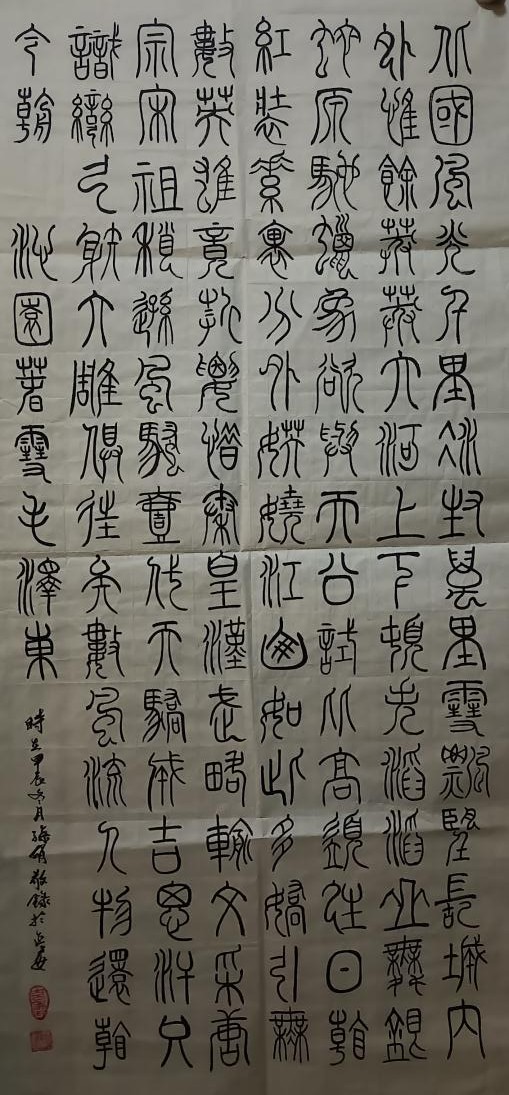 北國風光千里冰封萬里雪飄望長城內
外惟餘莽莽大河上下頓失滔滔山舞銀
蛇原馳蠟象欲與天公試比高須晴日看
紅裝素裹分外妖嬈江山如此多嬌引無
數英雄競折腰惜秦皇漢武略輸文采唐
宗宋祖稍遜風騷壹代天驕成吉思汗只
識彎弓射大雕俱往矣數風流人物還看
今朝 沁園春雪毛澤東
時在甲辰冬月敬錄於